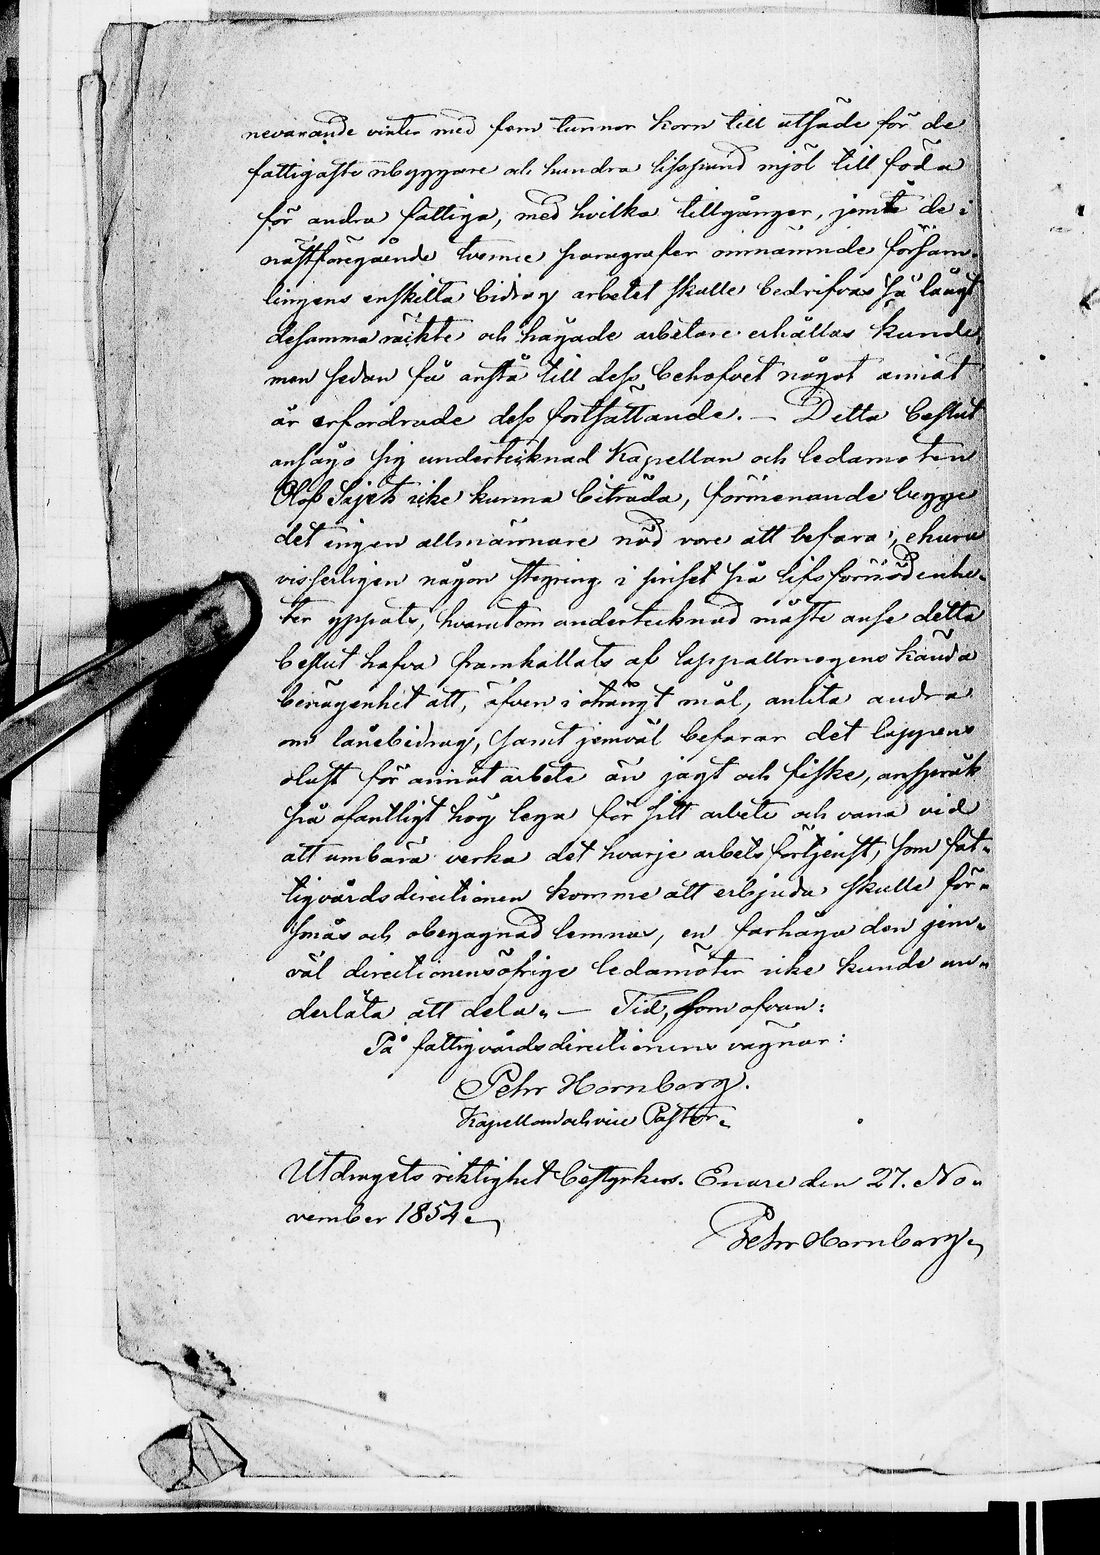 nevarande vinter med fem tunnor korn till utsäde för de
fattigaste nbyggare och hundra lispund mjöl till föda
för andra fattiga, med hvilka tillgångar, jemte de i
nästföregående tvenne paragrafer omnämnde försam-
lingens enskilta bidrag arbetet skulle bedrifvas så långt
desamma räckte och hågade arbetare erhållas kunde,
men sedan få anstå till dess behofvet något annat
år erfordrade dess fortsättande. — Detta beslut
ansågo sig undertecknad Kapellan och ledamoten
Olof Sajets icke kunna biträda, förmenande begge
det ingen allmännare nöd vore att befara, ehuru
visserligen någon stegring i priset på lifsförnödenhe-
ter yppats, hvarutom undertecknad måste anse detta
beslut hafva framkallats af lappallmogens kända
benägenhet att, äfven i oträngt mål, anlita andra
om lånebidrag, samt jemväl befarar det lappens
olust för annat arbete än jagt och fiske, anspråk
på ofantligt hög lega för sitt arbete och vana vid
att umbära verka det hvarje arbetsförtjenst, som fat-
tigvårdsdirectionen komme att erbjuda skulle för-
smås och obegagnad lemnas, en farhåga den jem-
väl directionens öfrige ledamöter icke kunde un-
derlåta att dela. — Tid, som ofvan:
På fattigvårdsdirectionens vägnar:
Pehr Hornborg.
Kapellan och vice Pastor.
Utdragets riktighet bestyrkes. Enare den 27. No-
vember 1854.
Pehr Hornborg.